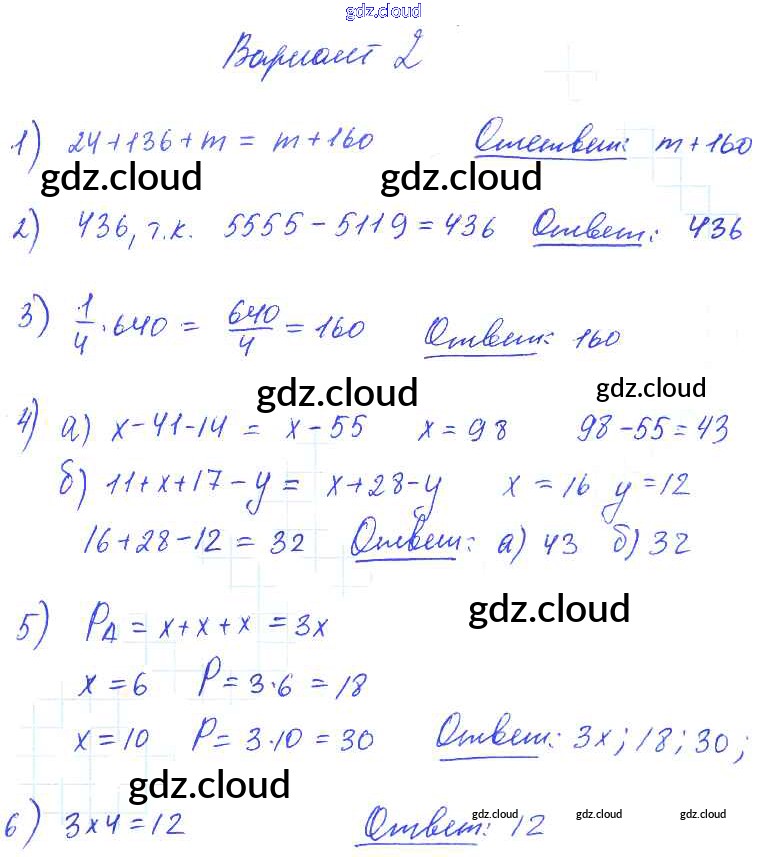 gdz.cloud
Вариант 2
1) 24+136+m = m+160 Ответ: m+160
gdz.cloud gdz.cloud
2) 436, т.к. 5555-5119=436 Ответ: 436
3) 1/4 · 640 = 640/4 = 160 Ответ: 160
gdz.cloud gdz.cloud
4) а) x-41-14 = x-55 x=98 98-55=43
б) 11+x+17-y = x+28-y x=16 y=12
16+28-12=32 Ответ: а) 43 б) 32
gdz.cloud
5) PΔ = x+x+x = 3x
x=6 P=3·6=18
x=10 P=3·10=30 Ответ: 3x; 18; 30;
gdz.cloud
6) 3x4=12 Ответ: 12
gdz.cloud gdz.cloud gdz.cloud